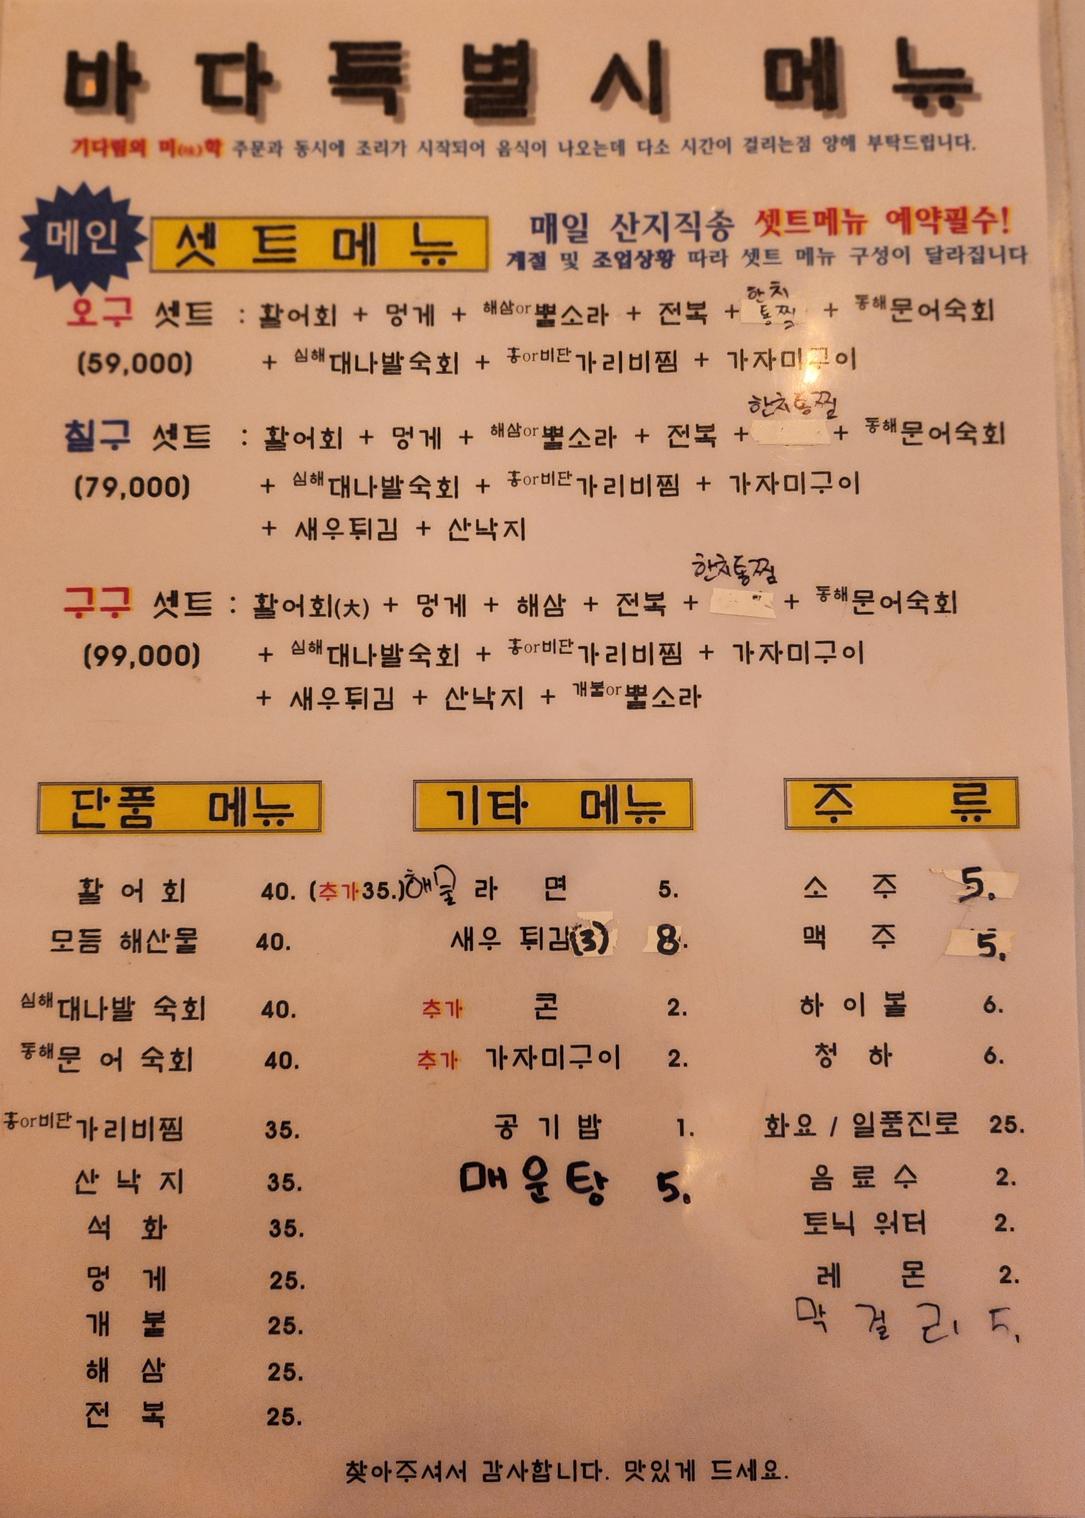 바다특별시 메뉴
기다림의 미(味)학 주문과 동시에 조리가 시작되어 음식이 나오는데 다소 시간이 걸리는점 양해 부탁드립니다.
메인 셋트메뉴 매일 산지직송 셋트메뉴 예약필수!
계절 및 조업상황 따라 셋트 메뉴 구성이 달라집니다
한치
오구 셋트 : 활어회 + 멍게 + 해삼or뿔소라 + 전복 + 통찜 + 동해문어숙회
(59,000) + 심해대나발숙회 + 홍or비단가리비찜 + 가자미구이
한치통찜
칠구 셋트 : 활어회 + 멍게 + 해삼or뿔소라 + 전복 + + 동해문어숙회
(79,000) + 심해대나발숙회 + 홍or비단가리비찜 + 가자미구이
+ 새우튀김 + 산낙지
한치통찜
구구 셋트 : 활어회(大) + 멍게 + 해삼 + 전복 + + 동해문어숙회
(99,000) + 심해대나발숙회 + 홍or비단가리비찜 + 가자미구이
+ 새우튀김 + 산낙지 + 개불or뿔소라
단품 메뉴
활어회 40. (추가35.)
모듬 해산물 40.
심해대나발 숙회 40.
동해문어 숙회 40.
홍or비단가리비찜 35.
산낙지 35.
석화 35.
멍게 25.
개불 25.
해삼 25.
전복 25.
기타 메뉴
해물라면 5.
새우 튀김(3) 8.
추가 콘 2.
추가 가자미구이 2.
공기밥 1.
매운탕 5.
주류
소주 5.
맥주 5.
하이볼 6.
청하 6.
화요 / 일품진로 25.
음료수 2.
토닉 워터 2.
레몬 2.
막걸리 5.
찾아주셔서 감사합니다. 맛있게 드세요.